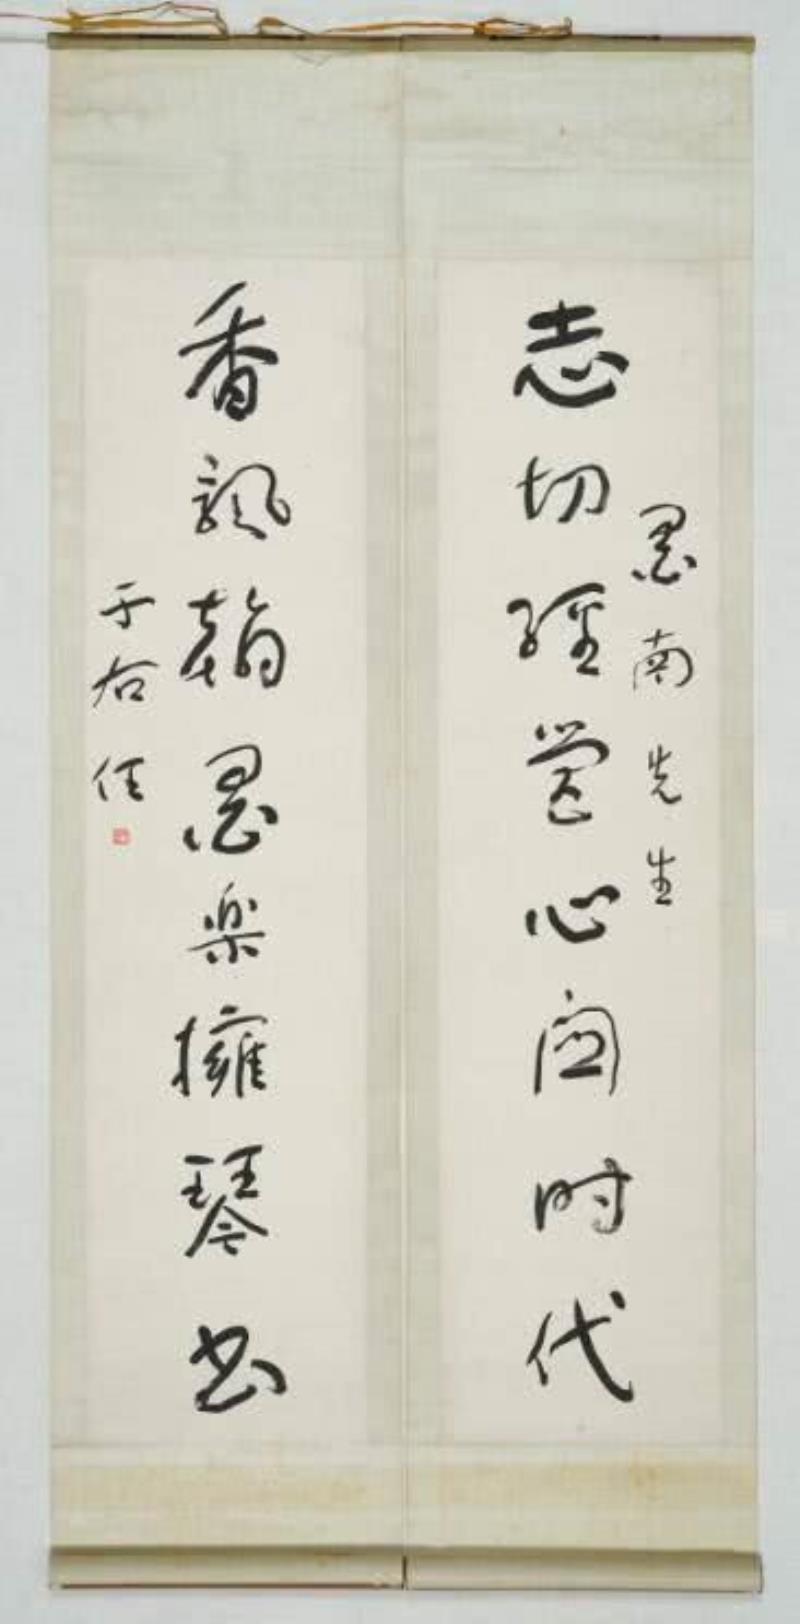 墨南先生
志切經營心關時代
香飄翰墨樂擁琴書
于右任